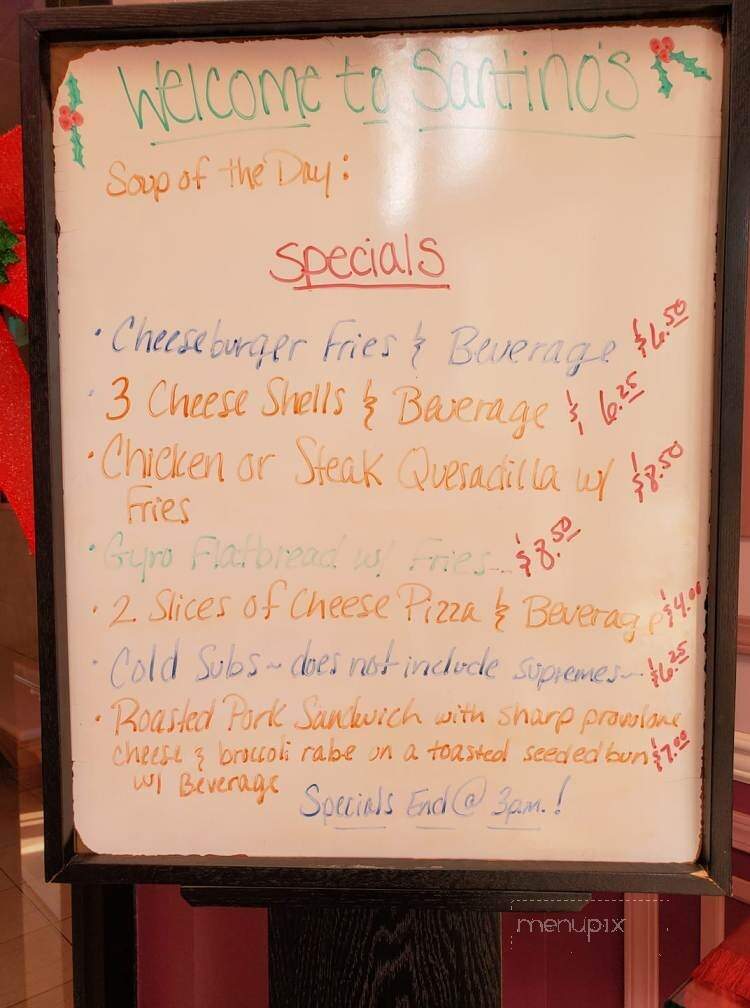 Welcome to Santino's
Soup of the Day:
Specials
• Cheeseburger Fries & Beverage $6.50
• 3 Cheese Shells & Beverage $6.25
• Chicken or Steak Quesadilla w/ $8.50
Fries
• Gyro Flatbread w/ Fries $8.50
• 2 Slices of Cheese Pizza & Beverage $4.00
• Cold Subs ~ does not include supremes ~ $6.25
• Roasted Pork Sandwich with sharp provolone
cheese & broccoli rabe on a toasted seeded bun $7.00
w/ Beverage
Specials End @ 3pm.!
menupix